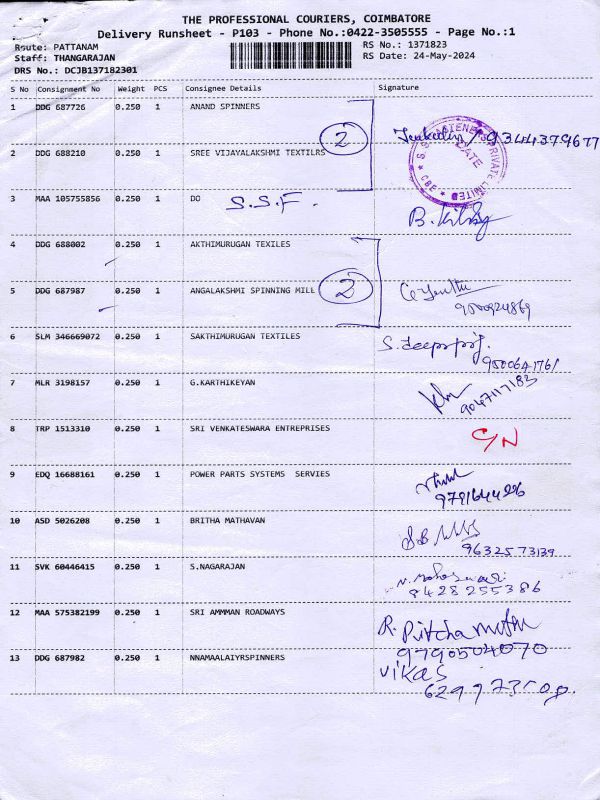 THE PROFESSIONAL COURIERS, COIMBATORE
Delivery Runsheet - P103 - Phone No.:0422-3505555 - Page No.:1
Route: PATTANAM
RS No.: 1371823
Staff: THANGARAJAN
RS Date: 24-May-2024
DRS No.: DCJB137182301
S No Consignment No Weight PCS Consignee Details Signature
1 DDG 687726 0.250 1 ANAND SPINNERS
2 9344379677
2 DDG 688210 0.250 1 SREE VIJAYALAKSHMI TEXTILRS
3 MAA 105755856 0.250 1 DO S.S.F.
4 DDG 688002 0.250 1 AKTHIMURUGAN TEXILES
5 DDG 687987 0.250 1 ANGALAKSHMI SPINNING MILL 2
9500924869
6 SLM 346669072 0.250 1 SAKTHIMURUGAN TEXTILES
9500641761
7 MLR 3198157 0.250 1 G.KARTHIKEYAN
9047117183
8 TRP 1513310 0.250 1 SRI VENKATESWARA ENTREPRISES C/N
9 EDQ 16688161 0.250 1 POWER PARTS SYSTEMS SERVIES
10 ASD 5026208 0.250 1 BRITHA MATHAVAN
9632573139
11 SVK 60446415 0.250 1 S.NAGARAJAN
9428255386
12 MAA 575382199 0.250 1 SRI AMMMAN ROADWAYS R. Pitchamuthu
9790504070
13 DDG 687982 0.250 1 NNAMAALAIYRSPINNERS vikas